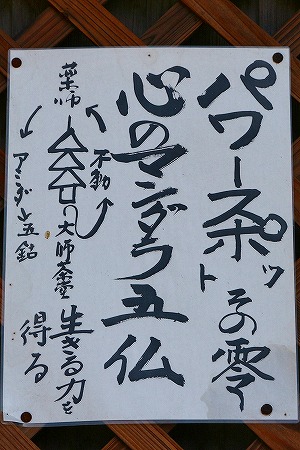 パワースポットその零
心のマンダラ五仏
薬師
不動
大師
アミダ
生きる力を
得る